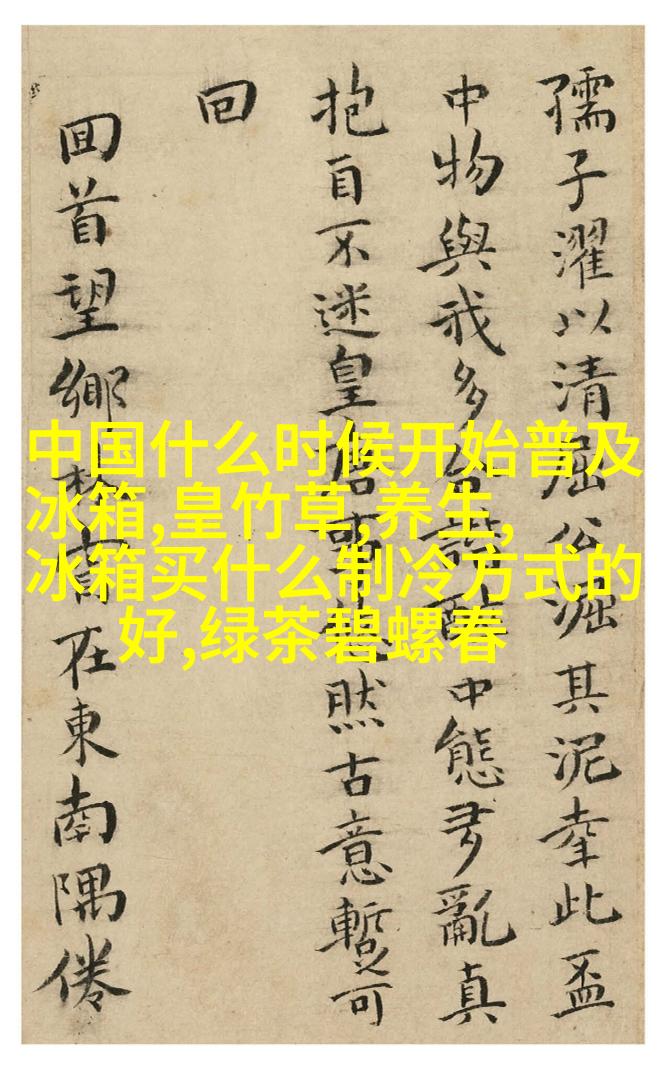 中国什么时候开始普及
冰箱,皇竹草,养生,
冰箱买什么制冷方式的
好,绿茶碧螺春
孺子濯以清屈公淈其泥此盃
中物與我多諧醉中態多亂真
抱自不迷皇然古意暫可
回
回首望鄉在東南隅倦